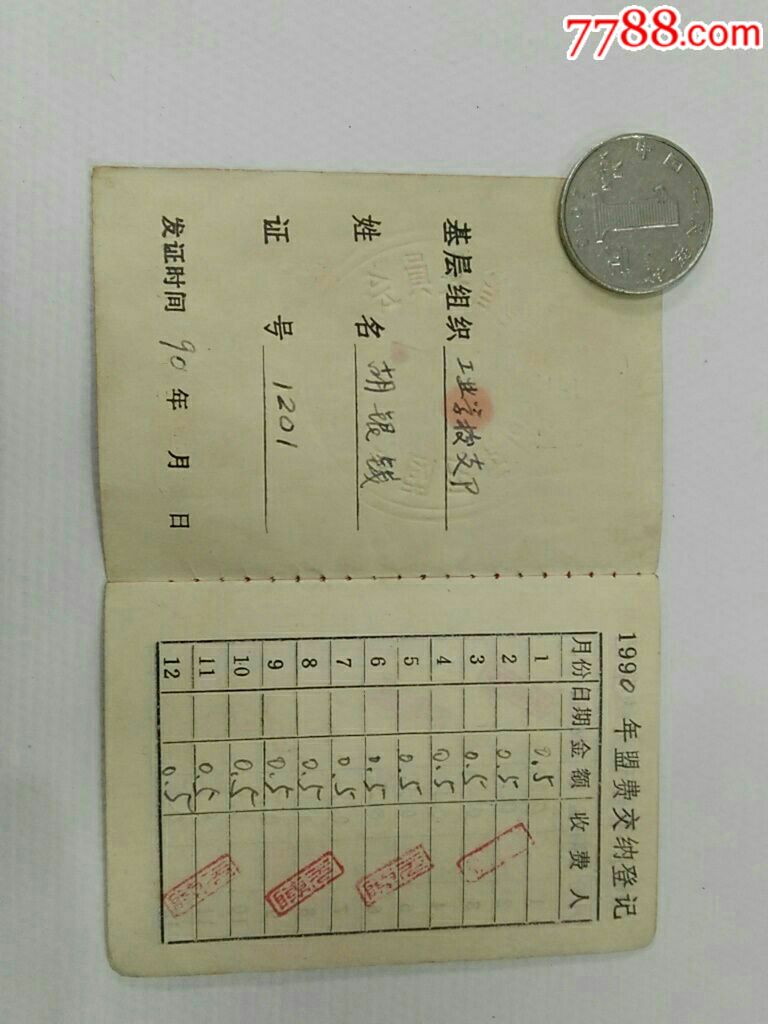 7788.com
基层组织 工业学校支部
姓名 胡银钱
证号 1201
发证时间 90年 月 日
1990年盟费交纳登记
月份 日期 金额 收费人
1 0.5
2 0.5
3 0.5
4 0.5
5 0.5
6 0.5
7 0.5
8 0.5
9 0.5
10 0.5
11 0.5
12 0.5